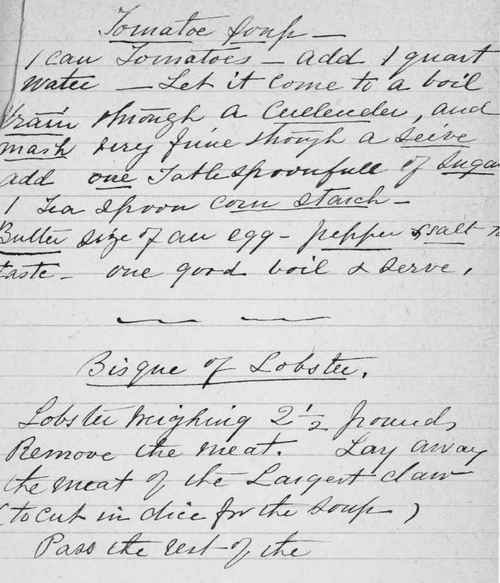 Tomatoe Soup —
1 can Tomatoes — add 1 quart
water — Let it come to a boil
drain through a Cullender, and
mash very fine though a seive
add one Tablespoonfull of Sugar
1 Tea spoon corn starch —
Butter size of an egg — pepper & salt
taste — one good boil & serve.
Bisque of Lobster.
Lobster weighing 2 1/2 pounds
Remove the meat. Lay away
the meat of the Largest claw
(to cut in dice for the soup)
Pass the rest of the